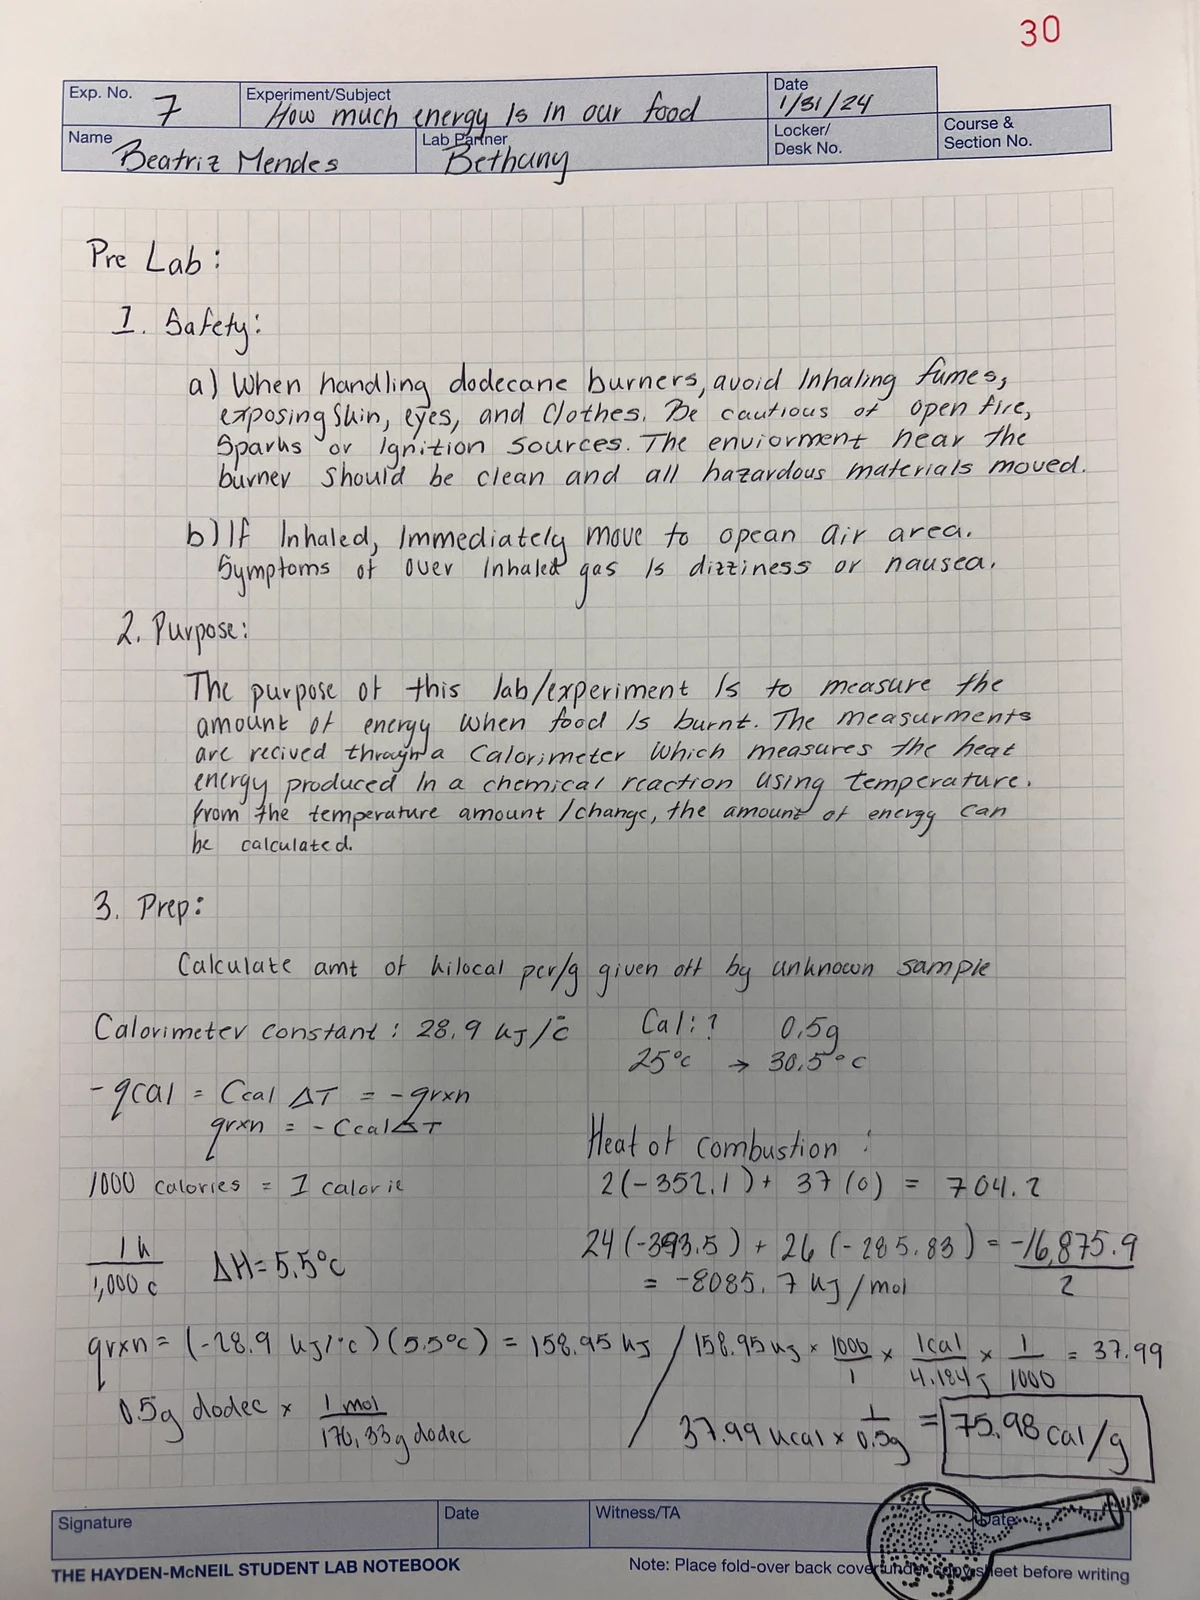 30
Exp. No. 7
Experiment/Subject How much energy Is in our food
Date 1/31/24
Name Beatriz Mendes
Lab Partner Bethany
Locker/
Desk No.
Course &
Section No.
Pre Lab:
1. Safety:
a) When handling dodecane burners, avoid Inhaling fumes,
exposing skin, eyes, and Clothes. Be cautious of open fire,
Sparks or Ignition sources. The enviorment near the
burner should be clean and all hazardous materials moved.
b) If Inhaled, Immediately move to opean air area.
Symptoms of over inhaled gas Is dizziness or nausea.
2. Purpose:
The purpose of this lab/experiment Is to measure the
amount of energy when food Is burnt. The measurments
are recived through a Calorimeter which measures the heat
energy produced In a chemical reaction using temperature.
From the temperature amount /change, the amount of energy can
be calculated.
3. Prep:
Calculate amt of kilocal per/g given off by unknown sample
Calorimeter constant: 28.9 kJ/°c
Cal: ? 0.5g
25°c → 30.5°c
-qcal = Ccal ΔT = -qrxn
qrxn = - CcalΔT
Heat of combustion:
2(-352.1) + 37(0) = 704.2
1000 calories = 1 calorie
24(-393.5) + 26(-285.83) = -16,875.9
2
= -8085.7 kJ/mol
1k
1,000 c
ΔH = 5.5°c
qrxn = (-28.9 kJ/°c)(5.5°c) = 158.95 kJ / 158.95 kJ × 1000/1 × 1cal/4.184J × 1/1000 = 37.99
0.5g dodec × 1 mol/170.33g dodec
37.99 kcal × 1/0.5g = 75.98 cal/g
Signature
Date
Witness/TA
Date
THE HAYDEN-McNEIL STUDENT LAB NOTEBOOK
Note: Place fold-over back cover under copy sheet before writing